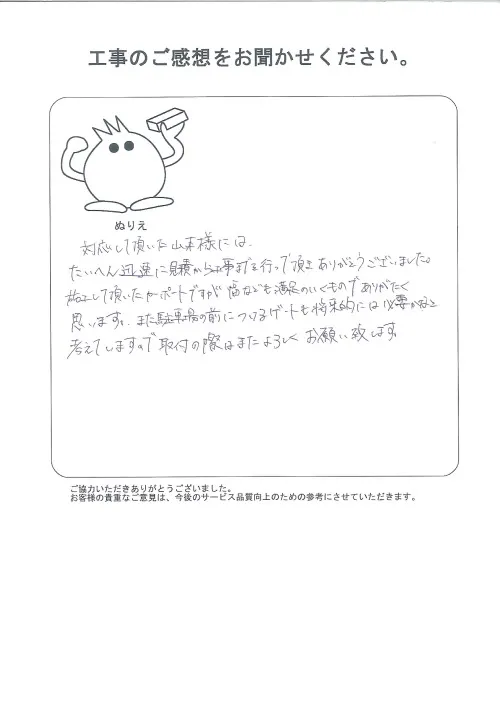 工事のご感想をお聞かせください。
ぬりえ
対応して頂いた山本様には、
たいへん迅速に見積から工事までを行って頂きありがとうございました。
施工して頂いたカーポートですが 満足のいくものでありがたく
思います。また駐車場の前につけるゲートも将来的には必要かなと
考えてしますので 取付の際はまたよろしくお願い致します
ご協力いただきありがとうございました。
お客様の貴重なご意見は、今後のサービス品質向上のための参考にさせていただきます。